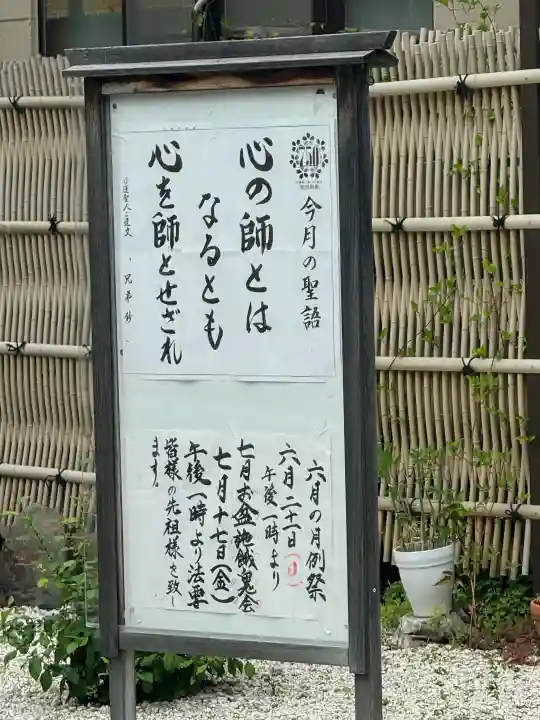 750
今月の聖語
心の師とは
なるとも
心を師とせざれ
日蓮聖人ご遺文
兄弟鈔
六月の月例祭
六月二十一日(日)
午後一時より
七月お盆施餓鬼会
七月十七日(金)
午後一時より法要
皆様の先祖様を致し
ます。